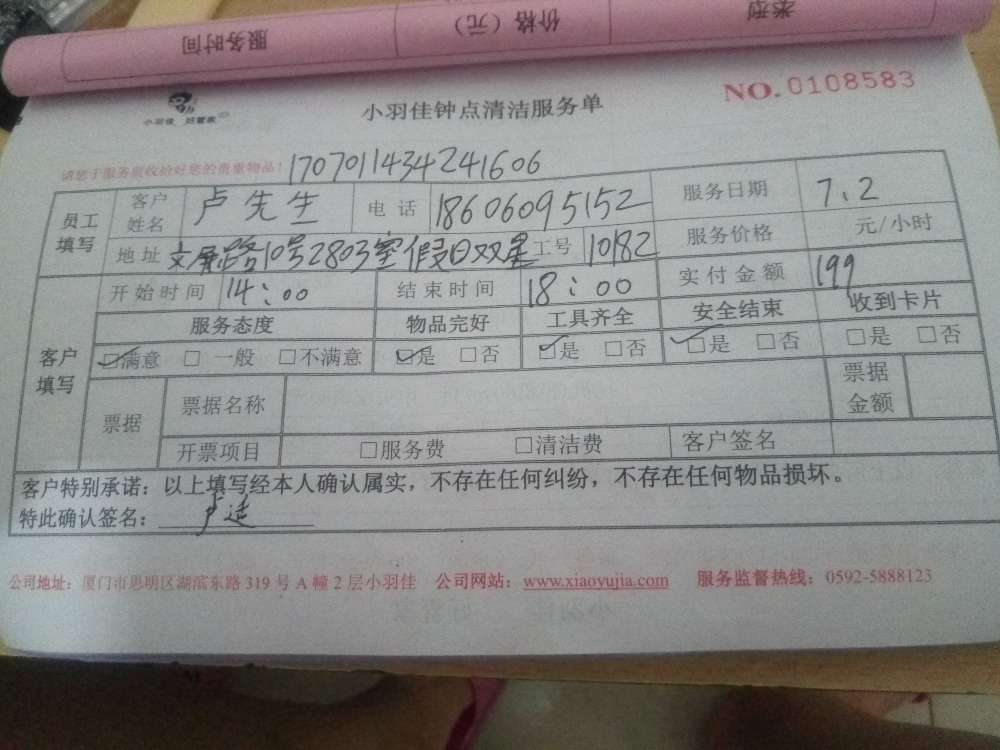 服务时间 价格（元） 类型
小羽佳 好管家
小羽佳钟点清洁服务单
NO.0108583
请您于服务前收拾好您的贵重物品！ 1707011434241606
员工填写 客户姓名 卢先生 电话 18606095152 服务日期 7.2
地址 文屏路10号2803室假日双星 工号 10182 服务价格 元/小时
开始时间 14:00 结束时间 18:00 实付金额 199
客户填写 服务态度 物品完好 工具齐全 安全结束 收到卡片
☑满意 □一般 □不满意 ☑是 □否 ☑是 □否 ☑是 □否 □是 □否
票据 票据名称 票据金额
开票项目 □服务费 □清洁费 客户签名
客户特别承诺：以上填写经本人确认属实，不存在任何纠纷，不存在任何物品损坏。
特此确认签名：卢
公司地址：厦门市思明区湖滨东路319号A幢2层小羽佳 公司网站：www.xiaoyujia.com 服务监督热线：0592-5888123